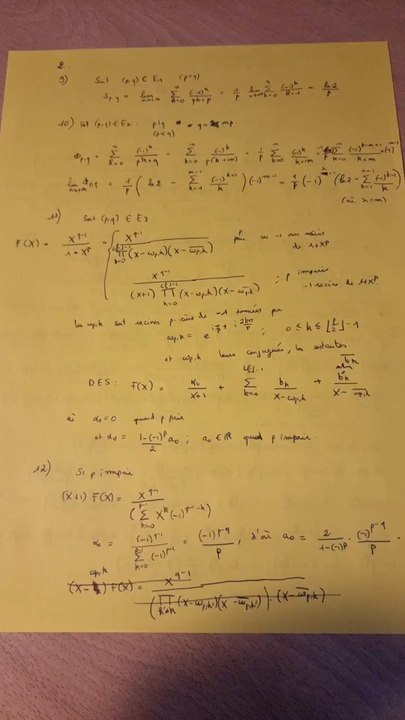 2.
9) Soit (p,q) ∈ E1 (p=q)
S_{p,q} = lim_{n→+∞} Σ_{k=0}^{n} (-1)^k / (pk+p) = 1/p lim_{n→+∞} Σ_{k=0}^{n} (-1)^k / (k+1) = ln 2 / p
10) Soit (p,q) ∈ E2. p|q q = mp
(p<q)
S_{p,q} = Σ_{k=0}^{n} (-1)^k / (pk+q) = Σ_{k=0}^{n} (-1)^k / (p(k+m)) = 1/p Σ_{k=0}^{n} (-1)^k / (k+m)
= 1/p (ln 2 - Σ_{k=1}^{m-1} (-1)^{k+1} / k) (-1)^{m-1}
11) Soit (p,q) ∈ E3
F(X) = X^{q-1} / (1+X^p) = { X^{q-1} / (∏_{k=0} (X-ω_{p,k})(X-\overline{ω_{p,k}})) p pair où -1 non racine
de 1+X^p
X^{q-1} / ((X+1) ∏_{k=0} (X-ω_{p,k})(X-\overline{ω_{p,k}})) ; p impair
-1 racine de 1+X^p
Les ω_{p,k} sont racines p-ième de -1 données par
ω_{p,k} = e^{iπ/p + i 2kπ/p} ; 0 ≤ k ≤ ⌊p/2⌋-1
et ω_{p,k} leurs conjuguées, les restantes.
DES : F(X) = α0 / (X+1) + Σ_{k=0} b_k / (X-ω_{p,k}) + \overline{b_k} / (X-\overline{ω_{p,k}})
où α0=0 quand p pair
et α0 = (1-(-1)^p)/2 a0 ; a0 ∈ ℝ quand p impair.
12) Si p impair
(X+1) F(X) = X^{q-1} / (Σ_{k=0}^{p-1} X^k (-1)^{p-1-k})
α0 = (-1)^{q-1} / (Σ_{k=0}^{p-1} (-1)^{p-1}) = (-1)^{p-q} / p, d'où a0 = 2/(1-(-1)^p) · (-1)^{p-q} / p.
F(X) = X^{q-1} / ((∏ (X-ω_{p,k'})(X-\overline{ω_{p,k'}})) · (X-\overline{ω_{p,k}}))